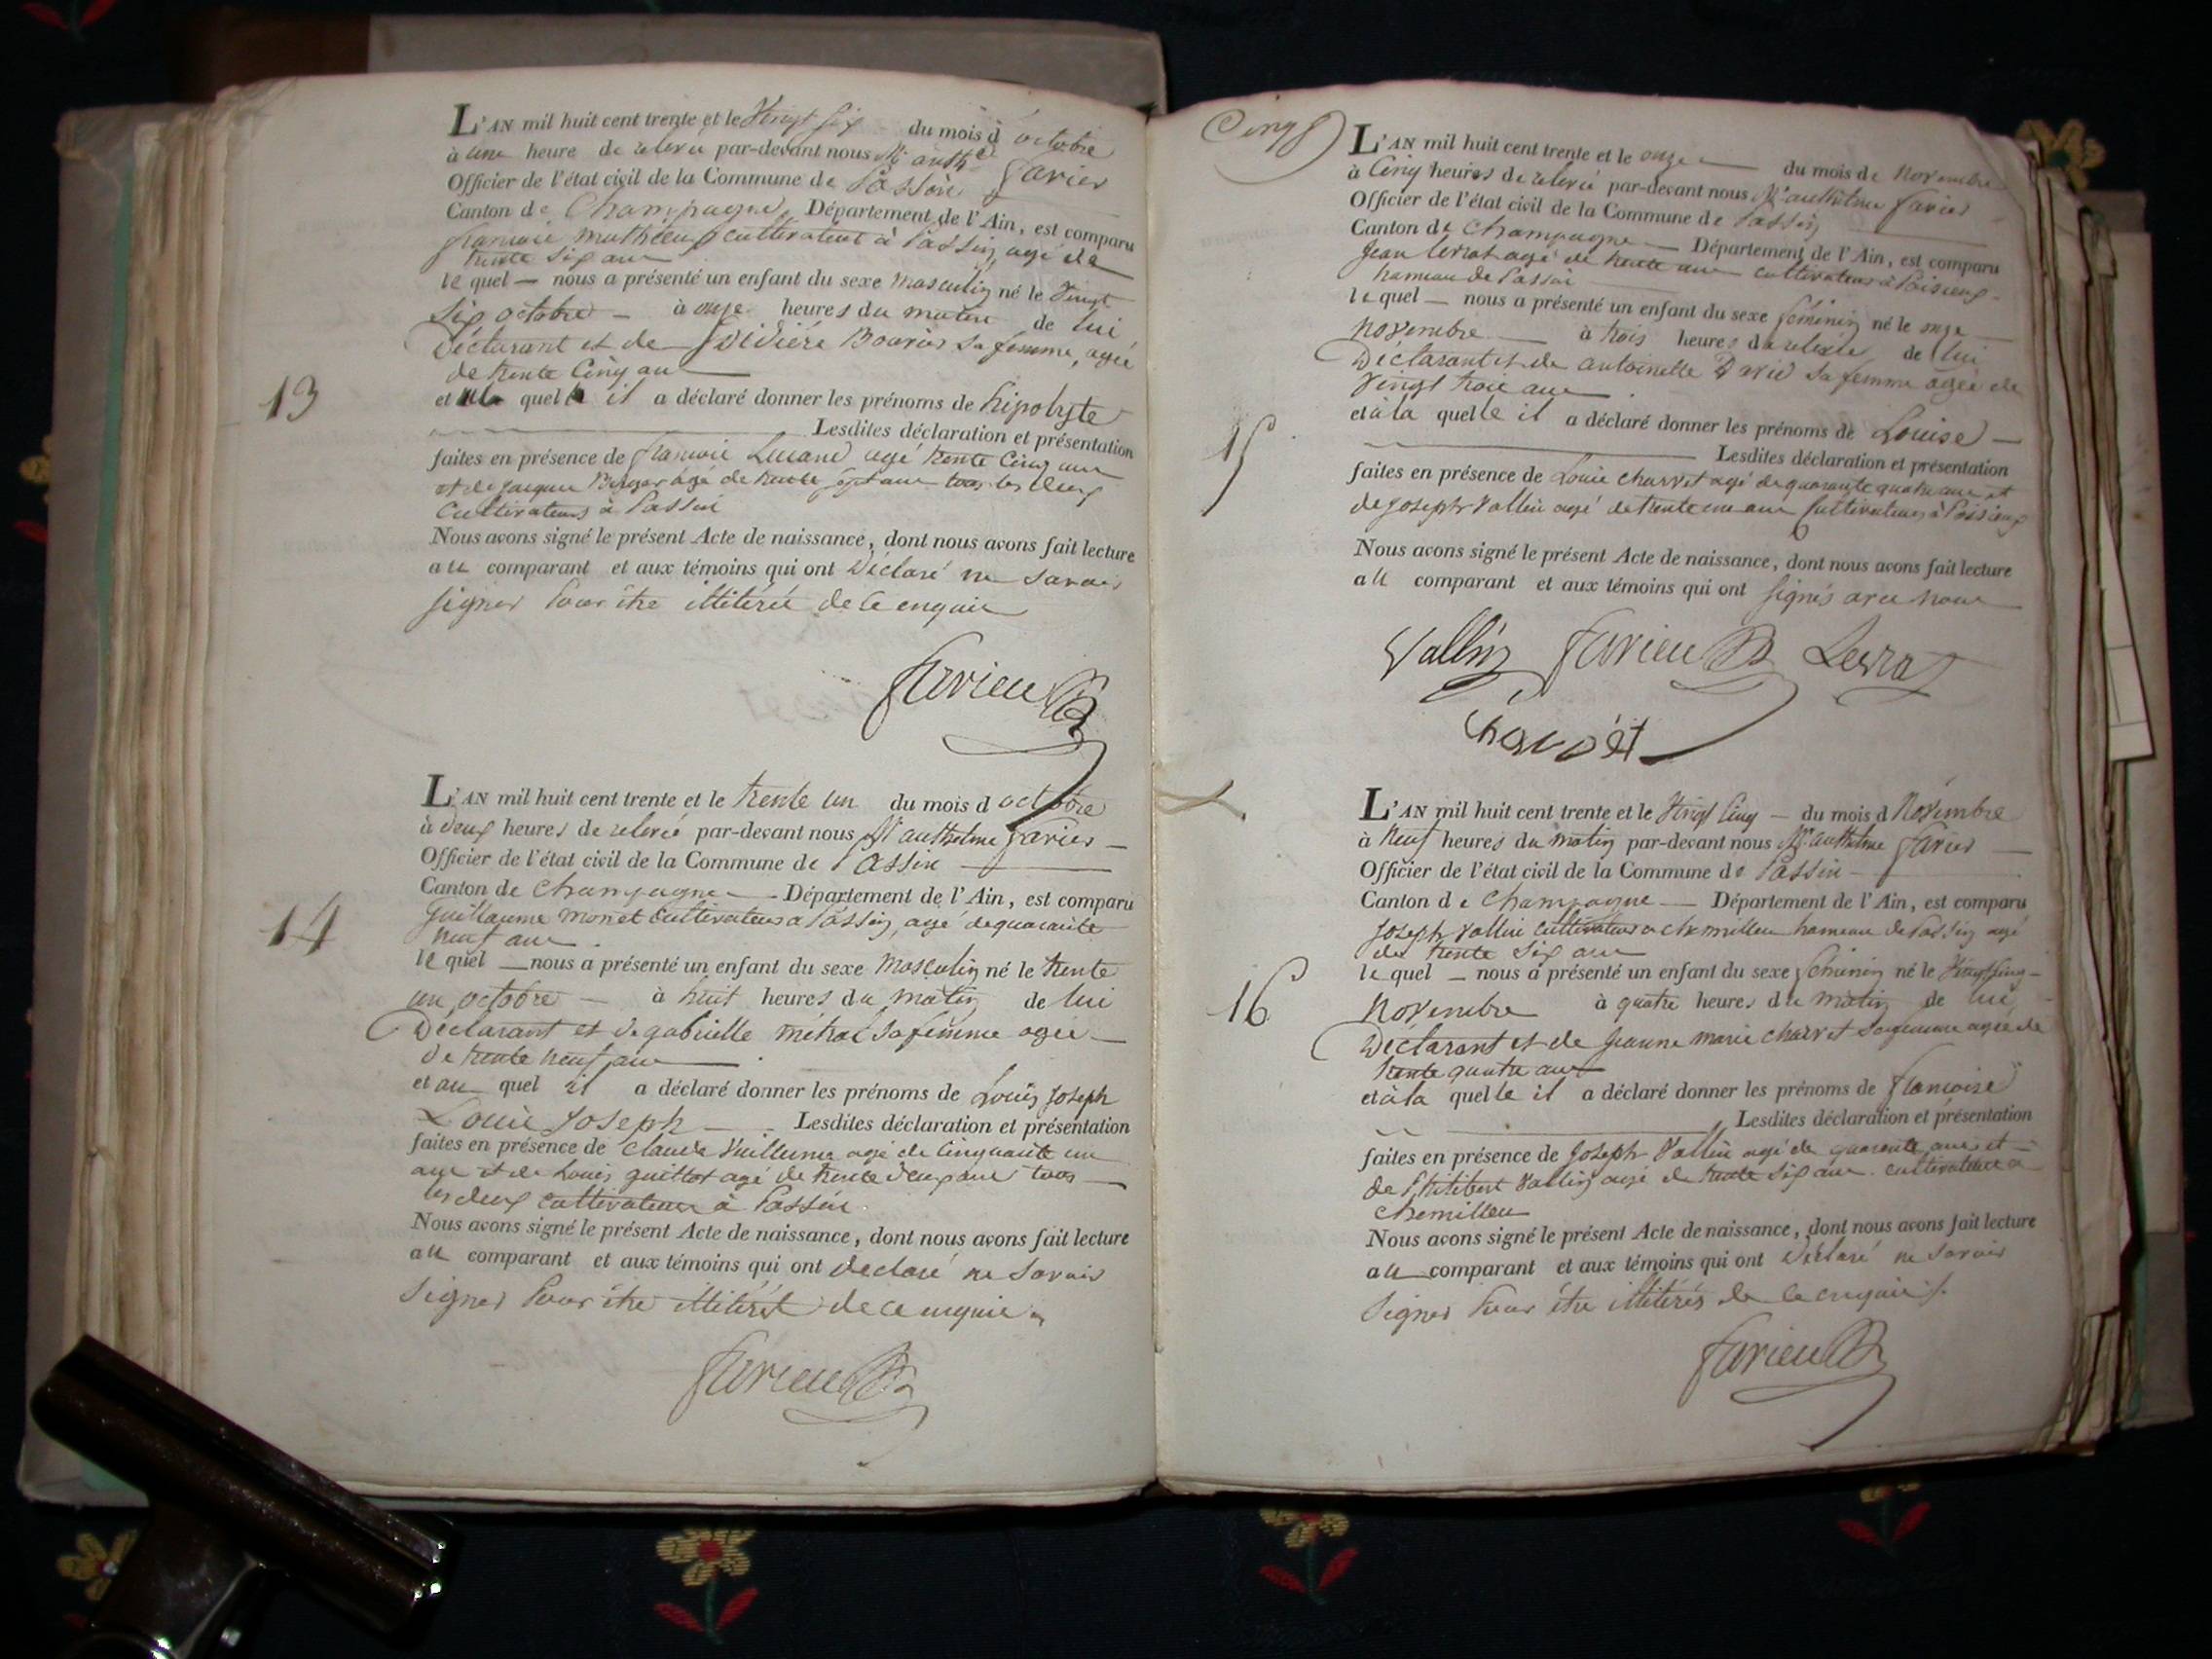 13
L'AN mil huit cent trente et le Vingt six du mois d octobre
à une heure de relevée par-devant nous Mr anthe favier
Officier de l'état civil de la Commune de Passin
Canton de Champagne, Département de l'Ain, est comparu
francois cultivateur à Passin, agé de
trente six ans
le quel — nous a présenté un enfant du sexe masculin né le Vingt
Six octobre — à onze heures du matin de lui
Déclarant et de Sa femme, agée
de trente Cinq ans
et quel il a déclaré donner les prénoms de hipolyte
Lesdites déclaration et présentation
faites en présence de francois agé trente Cinq ans
et de jacques agé de trente sept ans tous les deux
Cultivateurs à Passin
Nous avons signé le présent Acte de naissance, dont nous avons fait lecture
au comparant et aux témoins qui ont Déclaré ne Savoir
signer Pour être illiteré de ce enquis
favier
14
L'AN mil huit cent trente et le trente un du mois d octobre
à deux heures de relevée par-devant nous Mr anthelme favier —
Officier de l'état civil de la Commune de Passin
Canton de Champagne — Département de l'Ain, est comparu
guillaume monet cultivateur à Passin, agé de quarante
neuf ans
le quel — nous a présenté un enfant du sexe Masculin né le trente
un octobre — à huit heures du matin de lui
Déclarant et de gabrielle métral Sa femme agée —
de trente neuf ans
et au quel il a déclaré donner les prénoms de Louis joseph
Louis Joseph — Lesdites déclaration et présentation
faites en présence de Claude Vuillerme agé de Cinquante un
ans et de Louis guillot agé de trente deux ans tous —
les deux cultivateurs à Passin
Nous avons signé le présent Acte de naissance, dont nous avons fait lecture
au comparant et aux témoins qui ont declaré ne Savoir
Signer Pour être illiteré de ce enquis
favier
Cinq
15
L'AN mil huit cent trente et le onze — du mois de Novembre
à Cinq heures de relevée par-devant nous Mr anthelme favier
Officier de l'état civil de la Commune de Passin
Canton de Champagne — Département de l'Ain, est comparu
Jean Levrat agé de trente ans cultivateur à Poisieux
hameau de Passin
le quel — nous a présenté un enfant du sexe féminin né le onze
Novembre — à trois heures de relevée de lui
Déclarant et de antoinette David Sa femme agée de
Vingt trois ans
et à la quelle il a déclaré donner les prénoms de Louise —
Lesdites déclaration et présentation
faites en présence de Louis charvet agé de quarante quatre ans et
de joseph Vallin agé de trente un ans Cultivateurs à Poisieux
Nous avons signé le présent Acte de naissance, dont nous avons fait lecture
au comparant et aux témoins qui ont signés avec nous
Vallin favier Levrat
Charvet
16
L'AN mil huit cent trente et le Vingt Cinq — du mois d Novembre
à Neuf heures du matin par-devant nous Mr anthelme favier —
Officier de l'état civil de la Commune de Passin —
Canton de Champagne — Département de l'Ain, est comparu
Joseph Vallin Cultivateur a chemillieu hameau de Passin agé
de trente Six ans
le quel — nous a présenté un enfant du sexe féminin né le Vingt Cinq —
Novembre à quatre heures du matin de lui
Déclarant et de jeanne marie charvet Sa femme agée de
trente quatre ans
et à la quelle il a déclaré donner les prénoms de francoise
Lesdites déclaration et présentation
faites en présence de Joseph Vallin agé de quarante ans et —
de Philibert Vallin agé de trente Six ans. cultivateurs a
chemillieu
Nous avons signé le présent Acte de naissance, dont nous avons fait lecture
au comparant et aux témoins qui ont Déclaré ne Savoir
Signer Pour être illitérés de ce enquis
favier